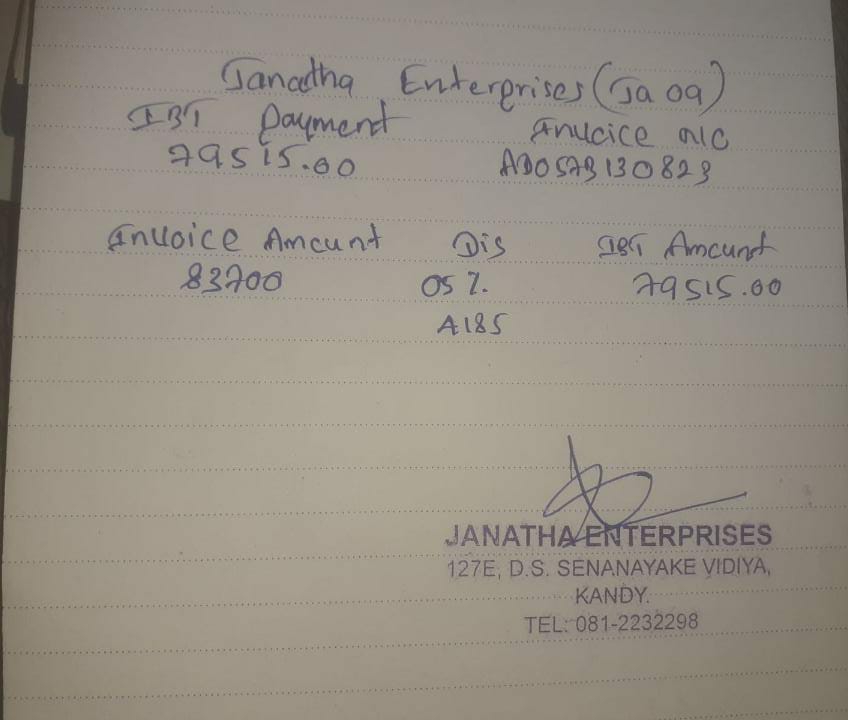 Janatha Enterprises (Ja 09)
IBT Payment Invoice No
79515.00 AD057B130823
Invoice Amount Dis IBT Amount
83700 05 %. 79515.00
A185
JANATHA ENTERPRISES
127E, D.S. SENANAYAKE VIDIYA,
KANDY.
TEL: 081-2232298